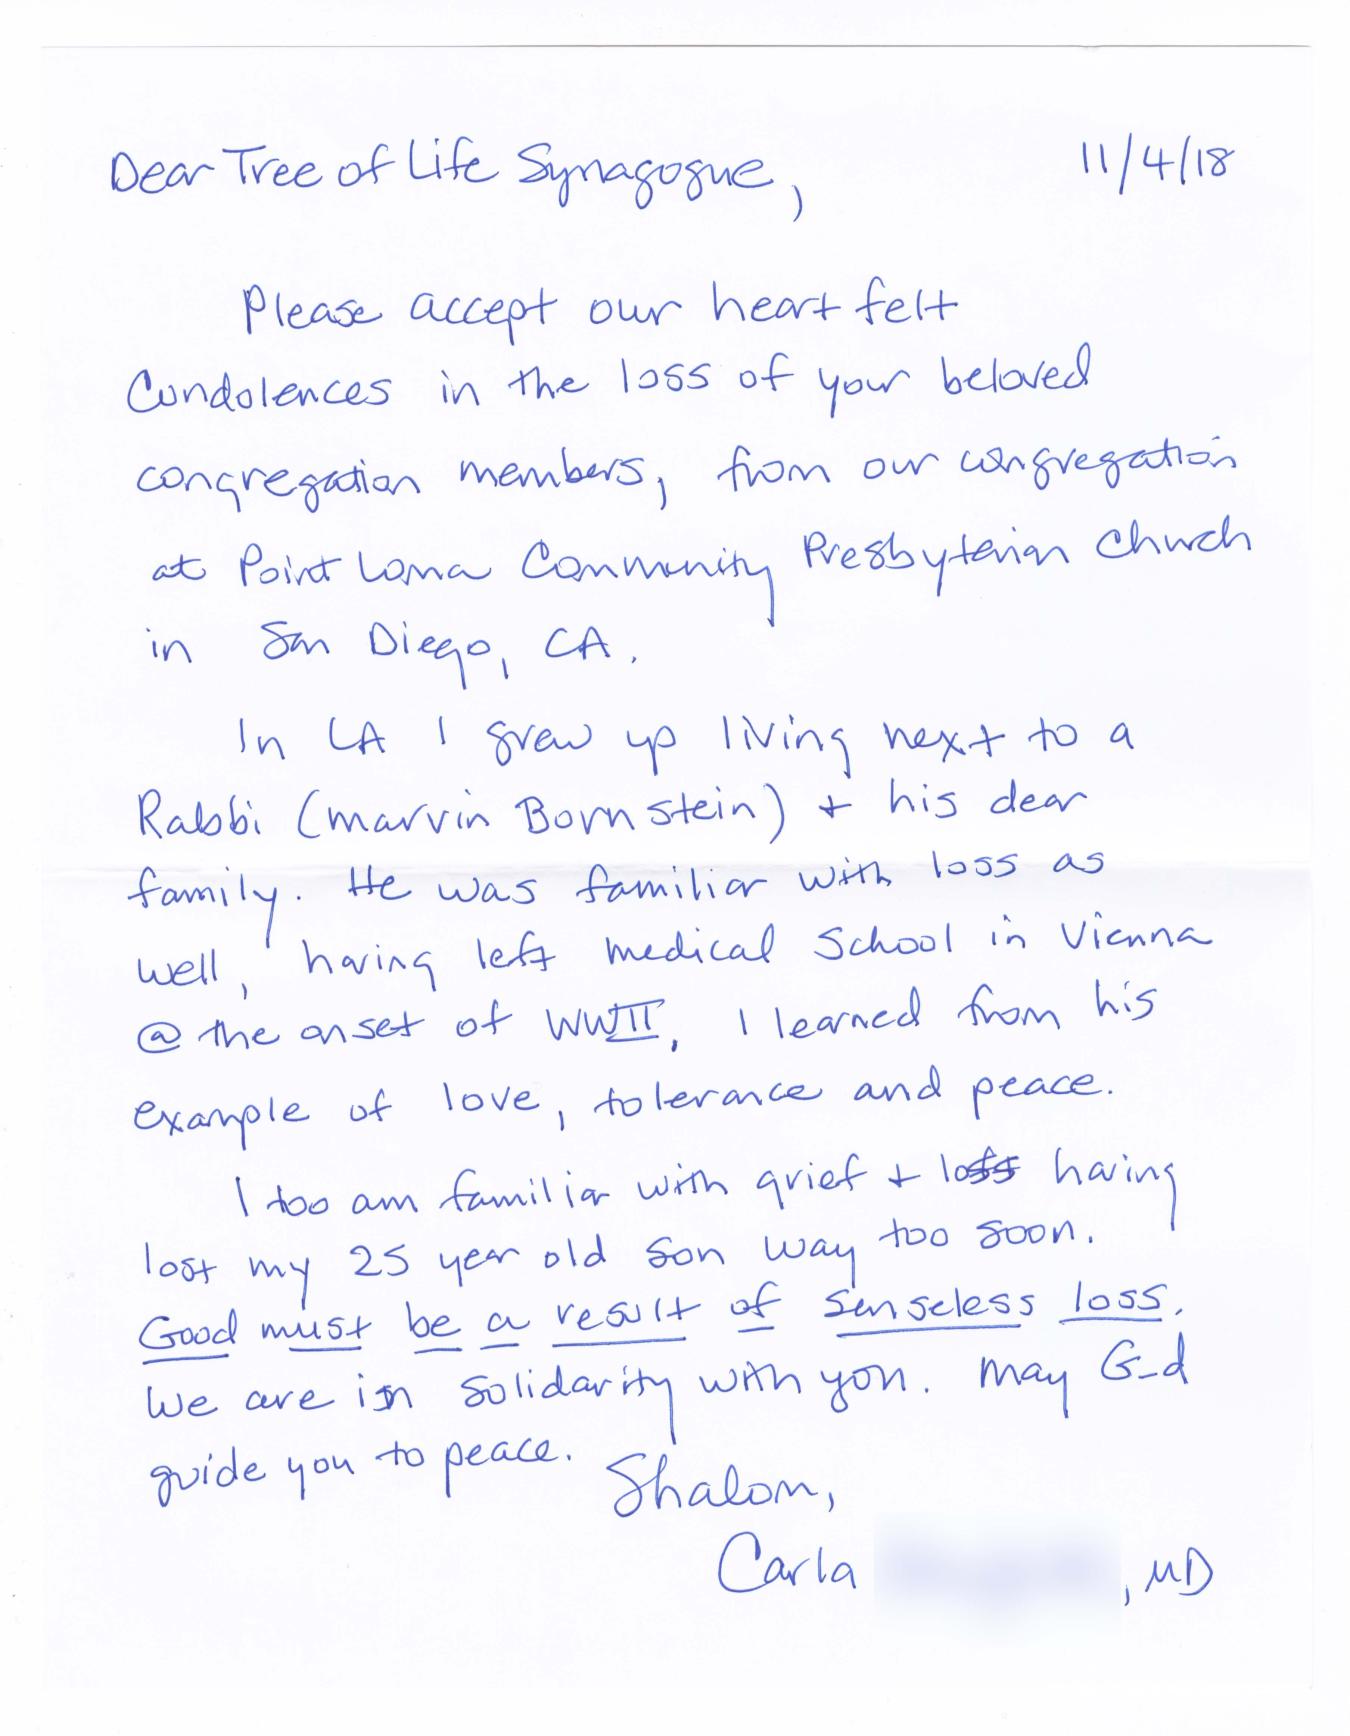 Dear Tree of Life Synagogue, 11/4/18
Please accept our heart felt
Condolences in the loss of your beloved
congregation members, from our congregation
at Point Loma Community Presbyterian Church
in San Diego, CA.
In LA I grew up living next to a
Rabbi (Marvin Bornstein) + his dear
family. He was familiar with loss as
well, having left medical school in Vienna
@ the onset of WWII. I learned from his
example of love, tolerance and peace.
I too am familiar with grief + loss having
lost my 25 year old son way too soon.
Good must be a result of senseless loss.
We are in solidarity with you. May G-d
guide you to peace.
Shalom,
Carla , MD